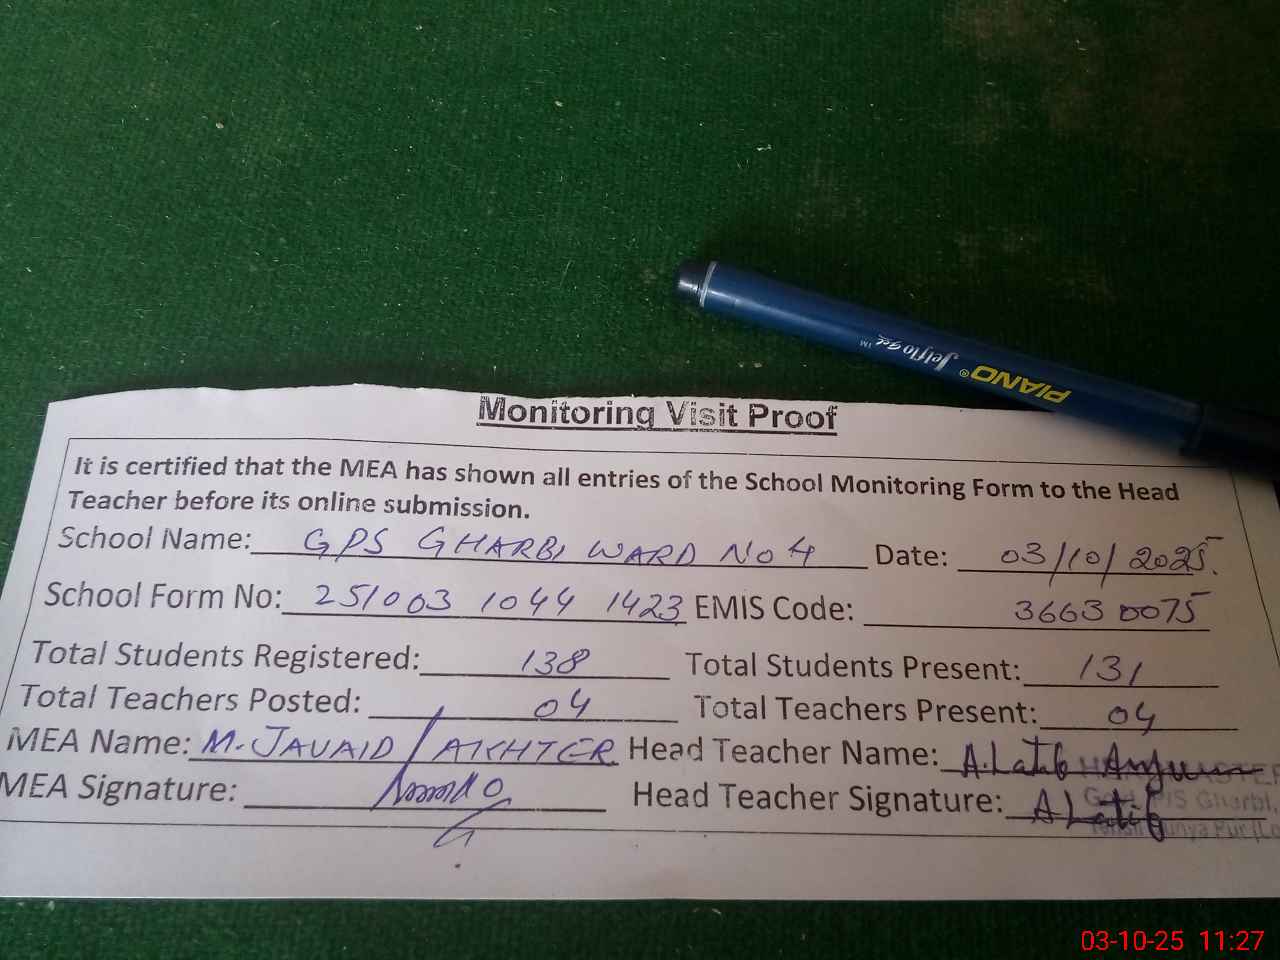 PIANO® Jelflo gel ™
Monitoring Visit Proof
It is certified that the MEA has shown all entries of the School Monitoring Form to the Head
Teacher before its online submission.
School Name: GPS GHARBI WARD No 4 Date: 03/10/2025.
School Form No: 251003 1044 1423 EMIS Code: 3663 0075
Total Students Registered: 138 Total Students Present: 131
Total Teachers Posted: 04 Total Teachers Present: 04
MEA Name: M. JAVAID AKHTER Head Teacher Name: A.Latif Anjum
MEA Signature: Head Teacher Signature: A Latif
P/S Gharbi,
03-10-25 11:27